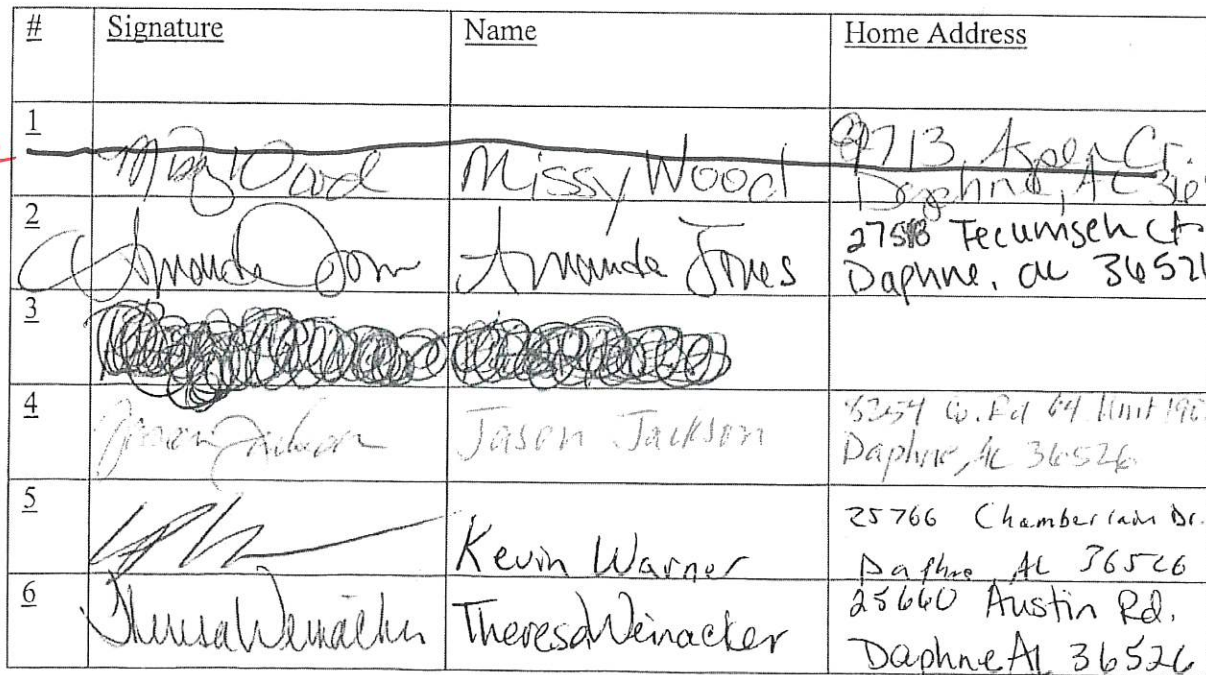 # Signature Name Home Address
1 Missy Wood Missy Wood 713, Aspen Cr.
Daphne, AL
2 Amanda Jones Amanda Jones Tecumseh Ct
Daphne, al 36526
3
4 Jason Jackson Jason Jackson Co. Rd 64 Unit
Daphne, AL 36526
5 Kevin Warner 25766 Chamberlain Dr.
Daphne AL 36526
6 Theresa Weinacker Theresa Weinacker 25660 Austin Rd.
Daphne AL 36526